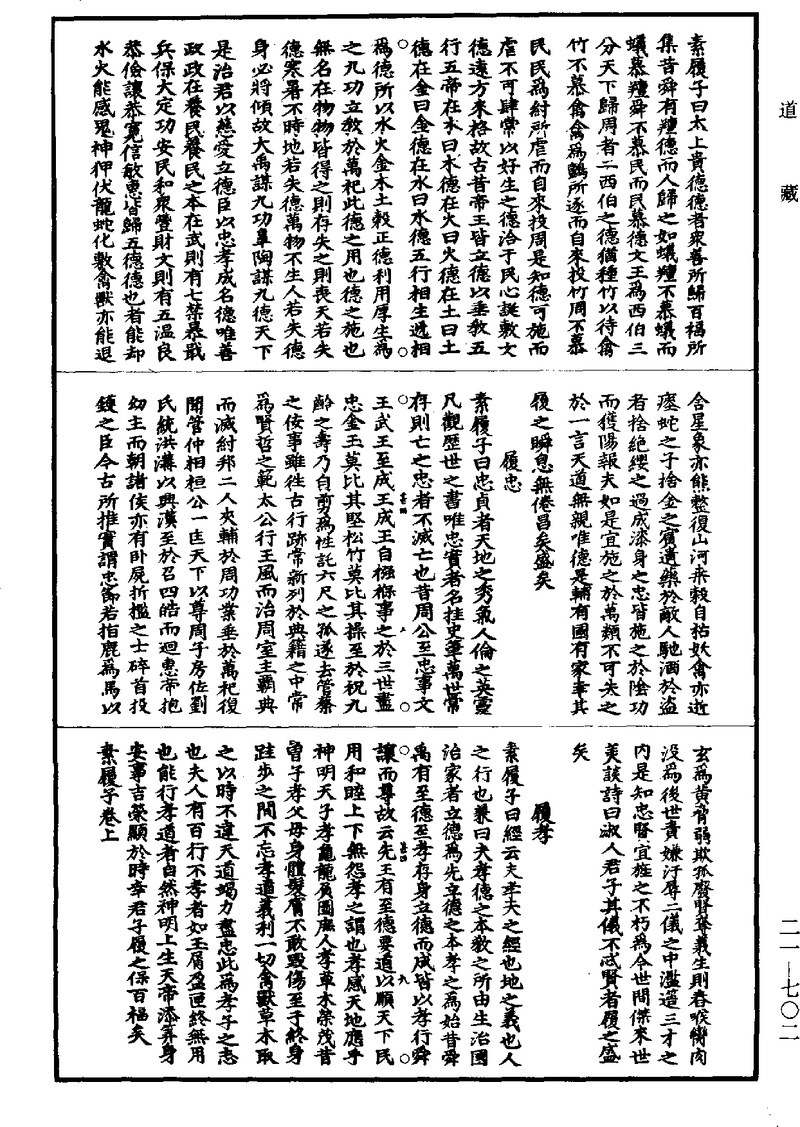 道藏
素履子曰太上貴德德者衆善所歸百福所
集昔舜有羶德而人歸之如蟻羶不慕蟻而
蟻慕羶舜不慕民而民慕德文王爲西伯三
分天下歸周者二西伯之德猶種竹以待禽
竹不慕禽禽爲鸇所逐而自來投竹周不慕
民民爲紂所虐而自來投周是知德可施而
虐不可肆常以好生之德洽于民心誕敷文
德遠方來格故古昔帝王皆立德以垂敎五
行五帝在木曰木德在火曰火德在土曰土
德在金曰金德在水曰水德五行相生遞相
爲德所以水火金木土穀正德利用厚生爲
之九功立敎於萬祀此德之用也德之施也
無名在物物皆得之則存失之則喪天若失
德寒暑不時地若失德萬物不生人若失德
身必將傾故大禹謀九功臯陶謀九德天下
是治君以慈愛立德臣以忠孝成名德唯善
政政在養民養民之本在武則有七禁暴戢
兵保大定功安民和衆豐財文則有五温良
恭儉讓恭寬信敏惠皆歸五德德也者能却
水火能感鬼神狎伏龍蛇化敷禽獸亦能退
舍星象亦能整復山河來穀自祐妖禽亦逝
瘞蛇之子捨金之賓遺藥於敵人馳酒於盜
者捨絶纓之過成漆身之忠皆施之於陰功
而獲陽報夫如是宜施之於萬類不可失之
於一言天道無親唯德是輔有國有家幸其
履之瞬息無倦昌矣盛矣
履忠
素履子曰忠貞者天地之秀氣人倫之英靈
凡觀歷世之書唯忠實者名挂史筆萬世常
存則亡之忠者不滅亡也昔周公至忠事文
王武王至成王成王自襁褓事之於三世盡
忠金玉莫比其堅松竹莫比其操至於祝九
齡之壽乃自剪爲牲託六尺之孤遂去管蔡
之佞事雖往古行跡常新列於典籍之中常
爲賢哲之範太公行王風而治周室主霸典
而滅紂邦二人夾輔於周功業垂於萬祀復
聞管仲相桓公一匡天下以尊周子房佐劉
氏統洪溝以興漢至於召四皓而迴惠帝抱
幼主而朝諸侯亦有卧屍折檻之士碎首投
鑊之臣今古所推實謂忠節若指鹿爲馬以
玄爲黄脅弱欺孤廢賢奪義生則舂喉臠肉
没爲後世責嫌汙辱二儀之中濫簉三才之
内是知忠賢宜旌之不朽爲今世間傑來世
美談詩曰淑人君子其儀不忒賢者履之盛
矣
履孝
素履子曰經云夫孝天之經也地之義也人
之行也兼曰夫孝德之本敎之所由生治國
治家者立德爲先立德之本孝之爲始昔舜
禹有至德至孝存身立德而咸皆以孝行舜
讓而尊故云先王有至德要道以順天下民
用和睦上下無怨孝之謂也孝感天地應乎
神明天子孝龜龍負圖庶人孝草木榮茂昔
曽子孝父母身體髮膚不敢毀傷至于終身
跬步之間不忘孝道義利一切禽獸草木取
之以時不違天道竭力盡忠此爲孝子之志
也夫人有百行不孝者如玉屑盈匣終無用
也能行孝道者自然神明上生天帝添筭身
安事吉榮顯於時幸君子履之保百福矣
素履子卷上
二一—七〇二